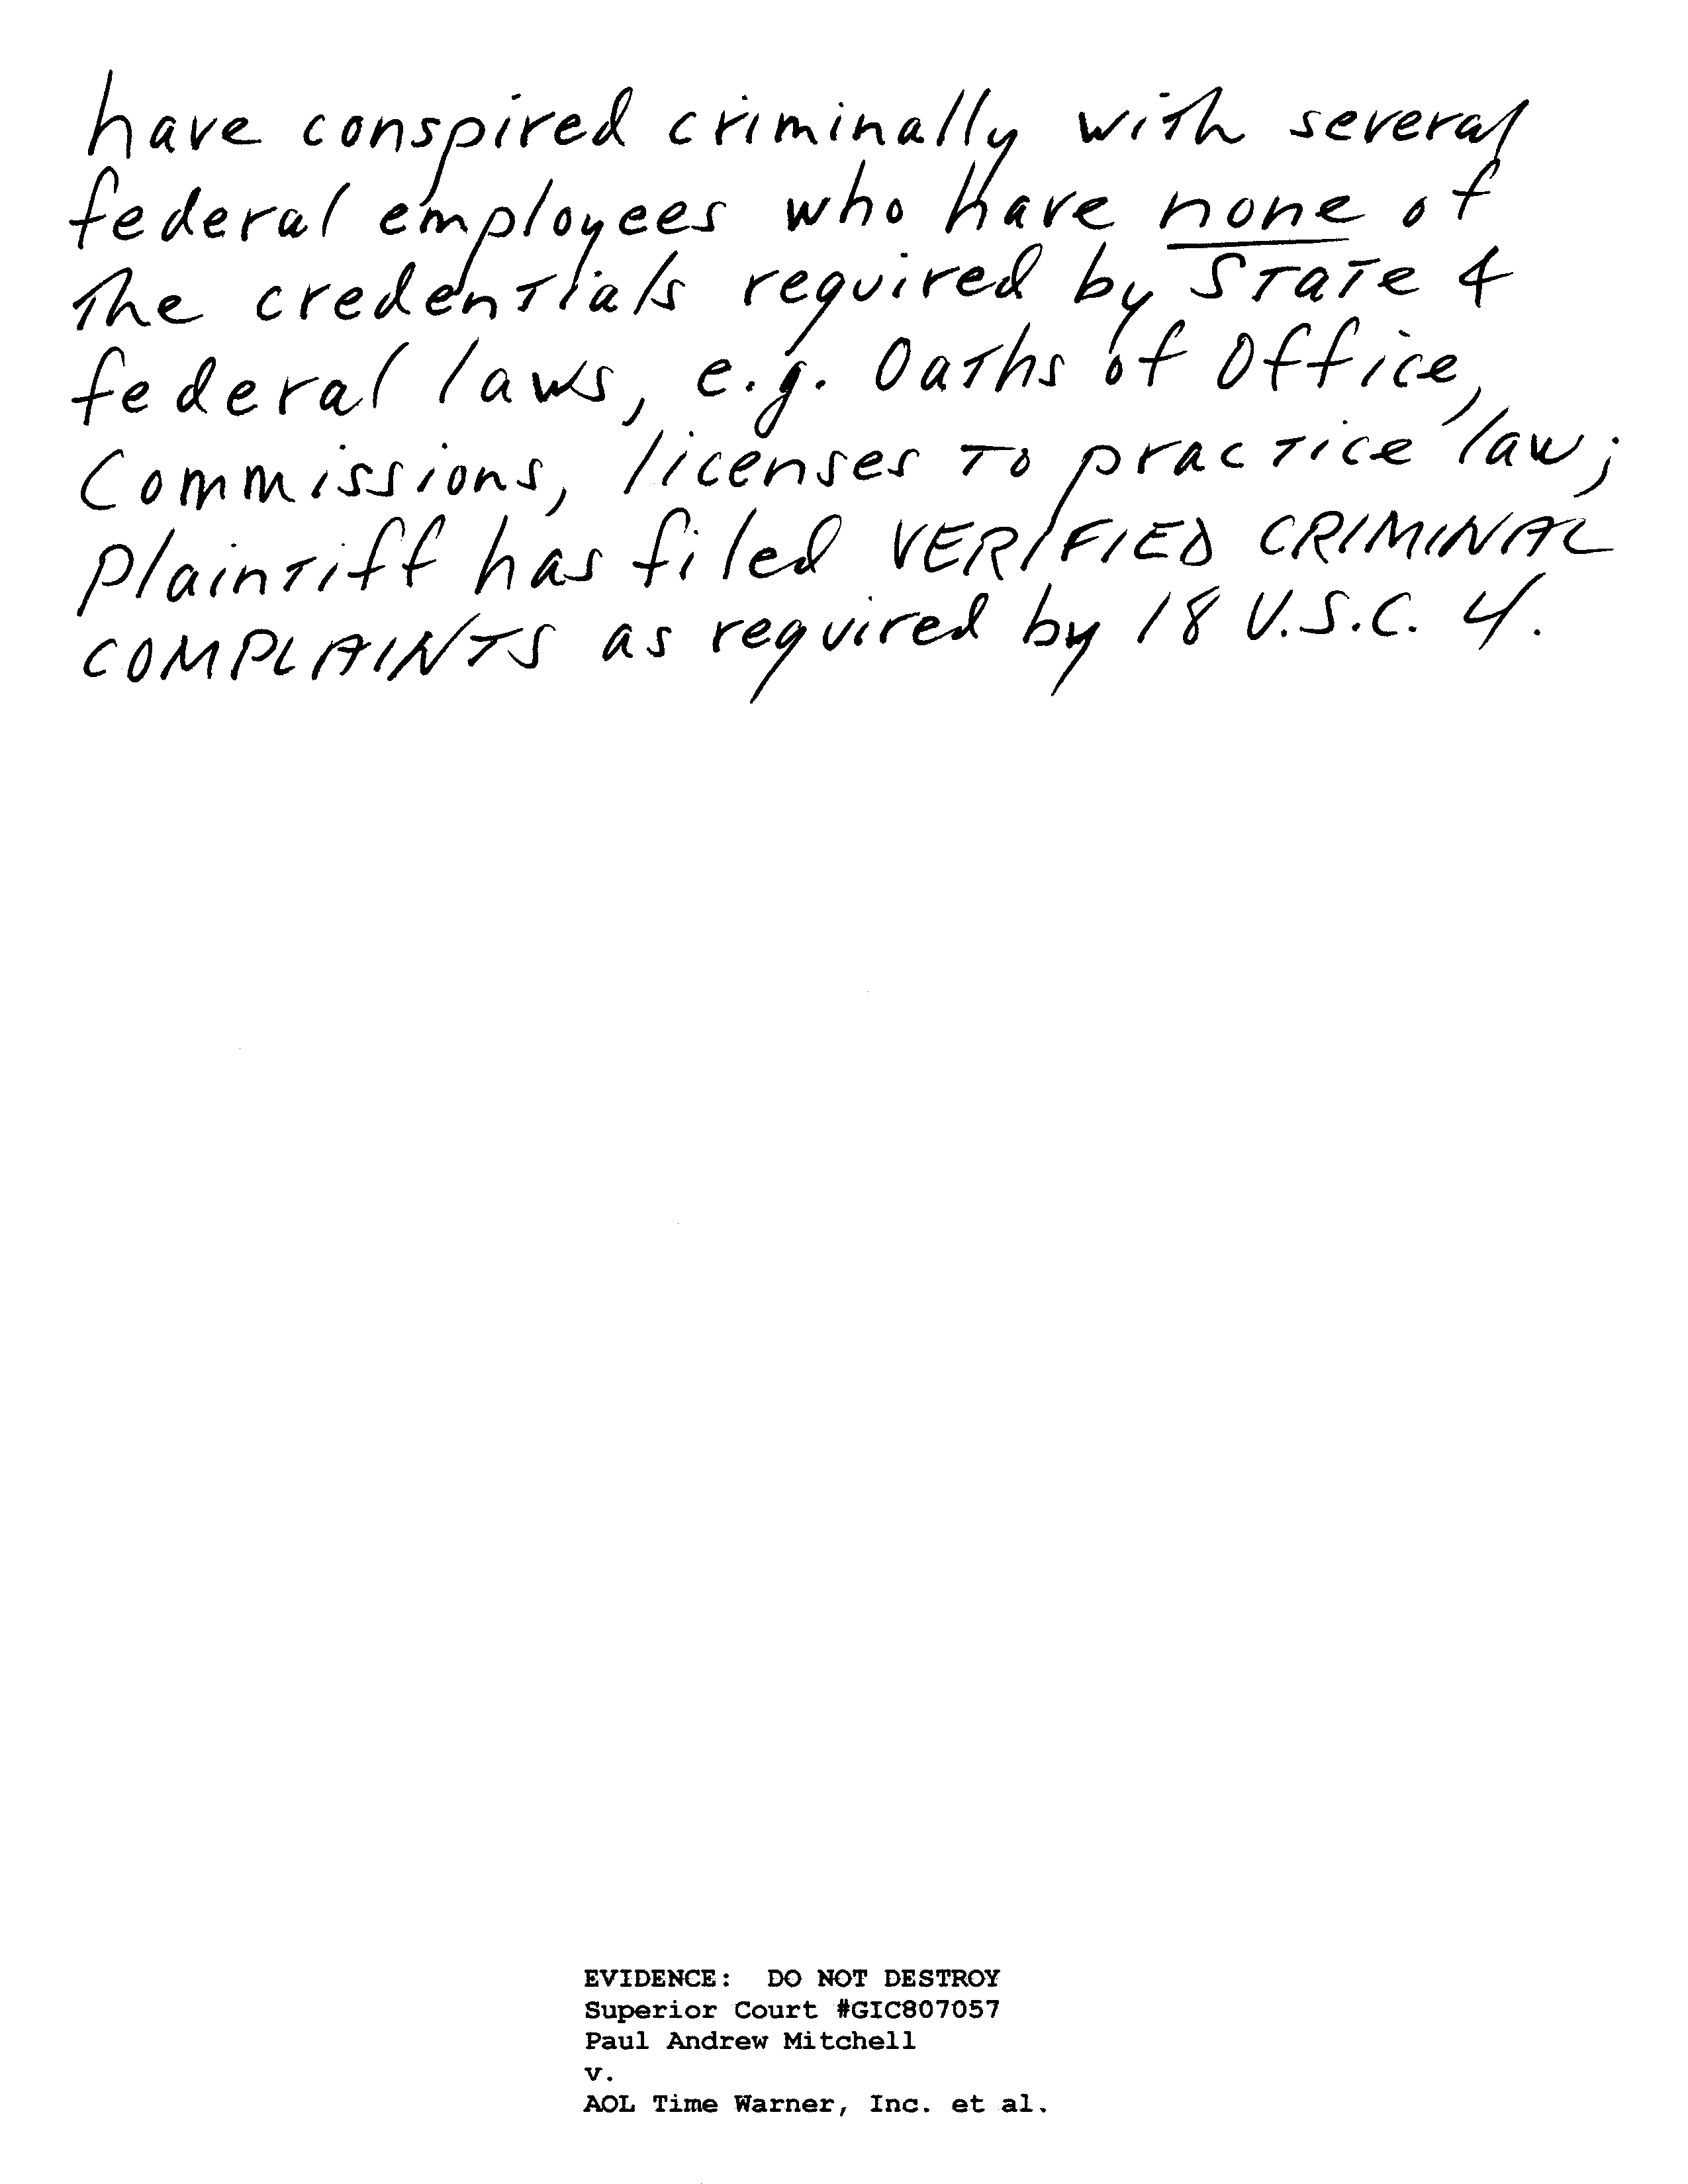 have conspired criminally with several
federal employees who have none of
the credentials required by State &
federal laws, e.g. Oaths of Office,
Commissions, licenses to practice law;
Plaintiff has filed VERIFIED CRIMINAL
COMPLAINTS as required by 18 U.S.C. 4.
EVIDENCE: DO NOT DESTROY
Superior Court #GIC807057
Paul Andrew Mitchell
v.
AOL Time Warner, Inc. et al.